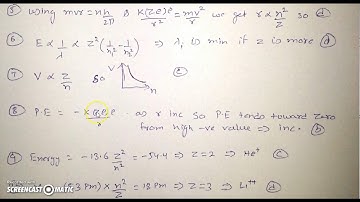 ⑤ using mvr = nh/2π & K(Ze)e/r² = mv²/r we get r ∝ n²/Z so (d)
⑥ E ∝ 1/λ ∝ Z²(1/n₁² - 1/n₂²) ⇒ λ is min if Z is more (d)
⑦ V ∝ Z/n so (c)
⑧ P.E = - as r inc so P.E tends toward zero
from high -ve value ⇒ inc. (b)
⑨ Energy = -13.6 Z²/n² = -54.4 ⇒ Z=2 ⇒ He⁺ (c)
3 Pm) × n²/Z = 18 Pm ⇒ Z=3 ⇒ Li⁺⁺ (d)
RECORDED WITH
SCREENCAST-O-MATIC